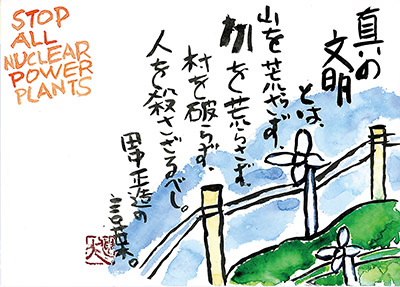 STOP
ALL
NUCLEAR
POWER
PLANTS
真の
文明
とは、
山を荒らさず、
川を荒らさず、
村を破らず、
人を殺さざるべし。
田中正造の
言葉。